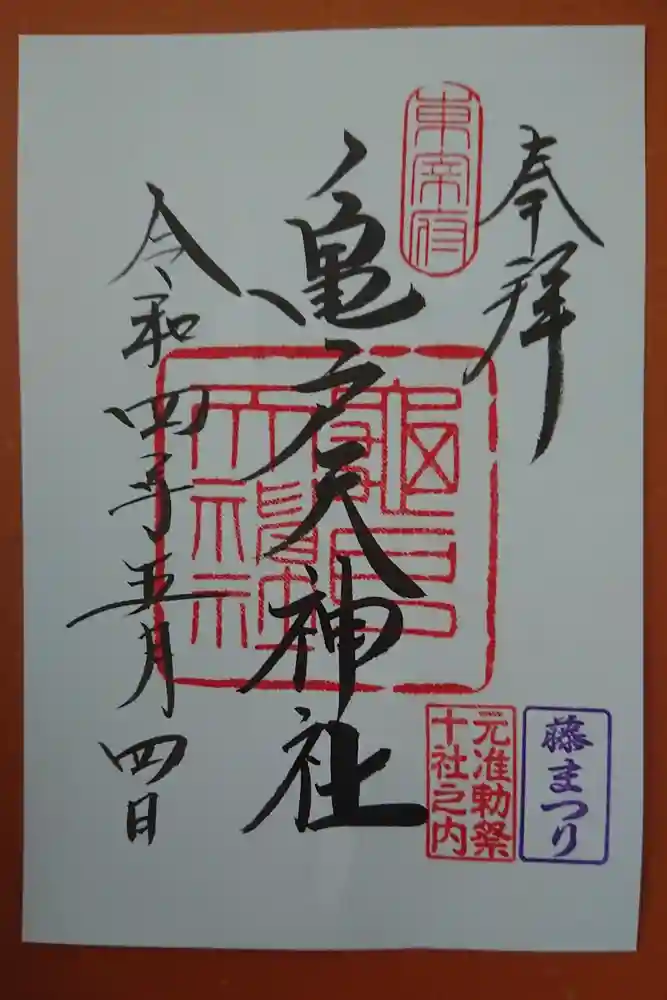 奉拝
東宰府
亀戸天神社
龜戸天神社
令和四年五月四日
元准勅祭
十社之内
藤まつり